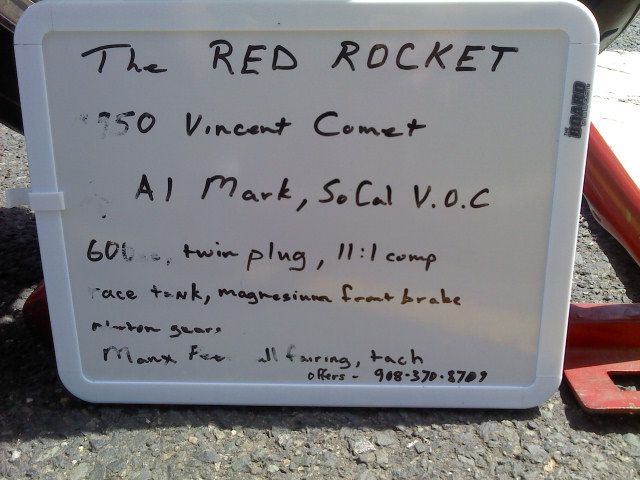 The RED ROCKET
950 Vincent Comet
Al Mark, SoCal V.O.C
twin plug, 11:1 comp
race tank, magnesium front brake
gears
Manx fairing, tach
offers - 908-370-8709
THE BOARD